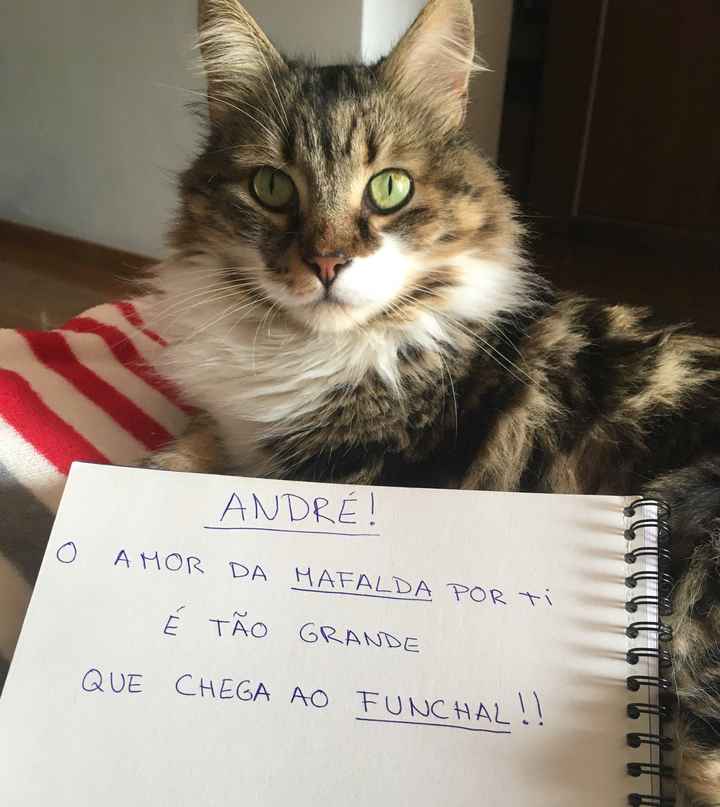 ANDRÉ!
O AMOR DA MAFALDA POR ti
É TÃO GRANDE
QUE CHEGA AO FUNCHAL!!